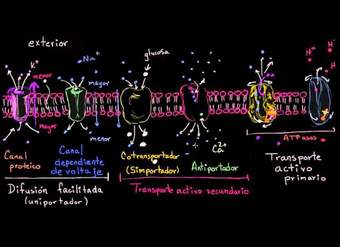 exterior
K⁺
menor
Na⁺
mayor
glucosa
H⁺
H⁺
H⁺
mayor
menor
Ca²⁺
ATPasas
Canal
proteico
Canal
dependiente
de voltaje
Cotransportador
(Simportador)
Antiportador
Transporte
activo
primario
Difusión facilitada
(uniportador)
Transporte activo secundario